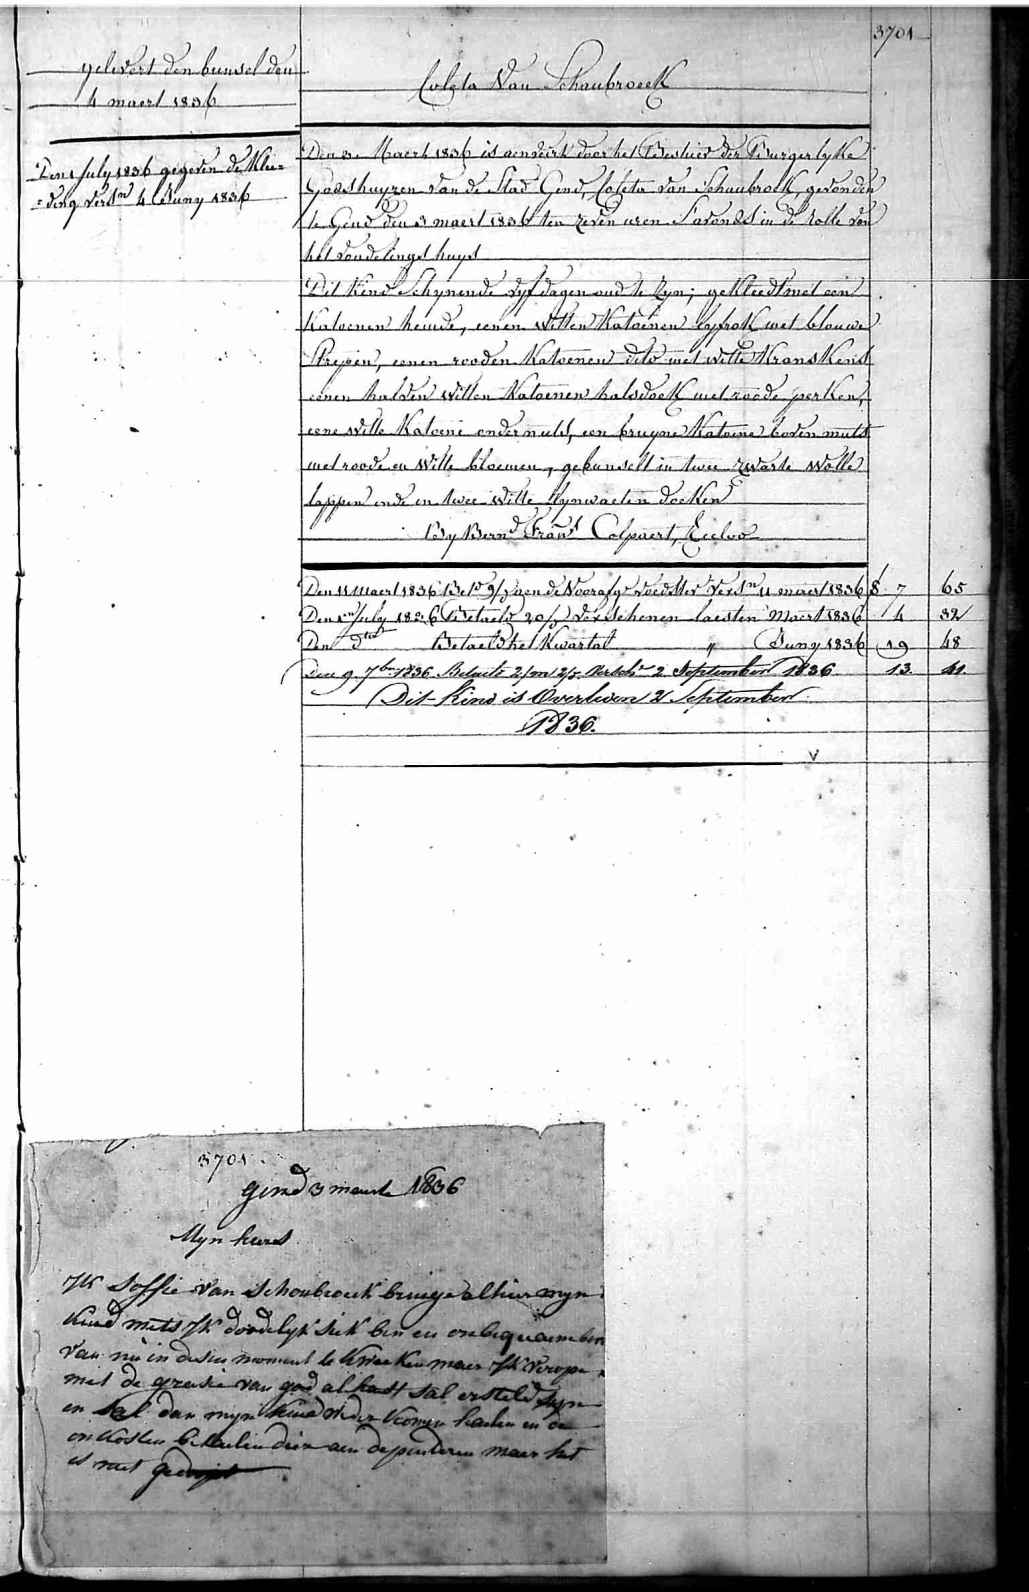 3701
gelevert den bunsel den
4 maert 1836
Coleta Van Schaubroeck
Den 1 July 1836 gegeven de Klee=
=ding versn 4 Juny 1836
Den 3n Maert 1836 is aenveirt door het Bestier der Burgerlyke
Godshuyzen van de Stad Gend, Coleta van Schaubroek, gevonden
te Gend den 3 maert 1836 ten zeven uren S'avonds in de rolle van
het vondelings huys
Dit Kind Schynende vyf dagen oud te zyn; gekleedt met een
Katoenen hemde, eenen Witten Katoenen lyfrok met blauwe
Strepen, eenen rooden Katoenen dito met witte Kranskens
eenen halven Witten Katoenen halsdoek met roode perken,
eene Witte Katoene onder muts, een bruyne Katoene boven muts
met roode en Witte bloemen, gebunselt in twee zwarte Wolle
lappen ende en twee Witte lynwaeten doeken
By Bernd Frans Colpaert, Eecloo
Den 11 Maert 1836 Bet aen de Voorafge voedster versn 11 maert 1836 8. 7 65
Den 1en July 1836 Betaeld 20/ verschenen laesten Maert 1836 4 32
Den dto Betaeld het Kwartal " Juny 1836 19 48
Den 9. 7ber 1836 Betaelt 2/m 2/ Versche 2 September 1836 13. 41
Dit Kind is Overleden 2 September
1836.
V
3701.
gend 3 maerte 1836
Myn heeres
Ik Soffie Van Schoubroeck brinige alhier myn
Kind mets Ik doodelyk siek ben en onbequaem ben
van nu in desen moment te Kweeken maer Ik verope
met de gracie van god al hast sal ersteld syn
en sal dan myn Kind weder Komen haelen en de
onkosten betaelen dier aen dependeren maer het
is niet gedoopt